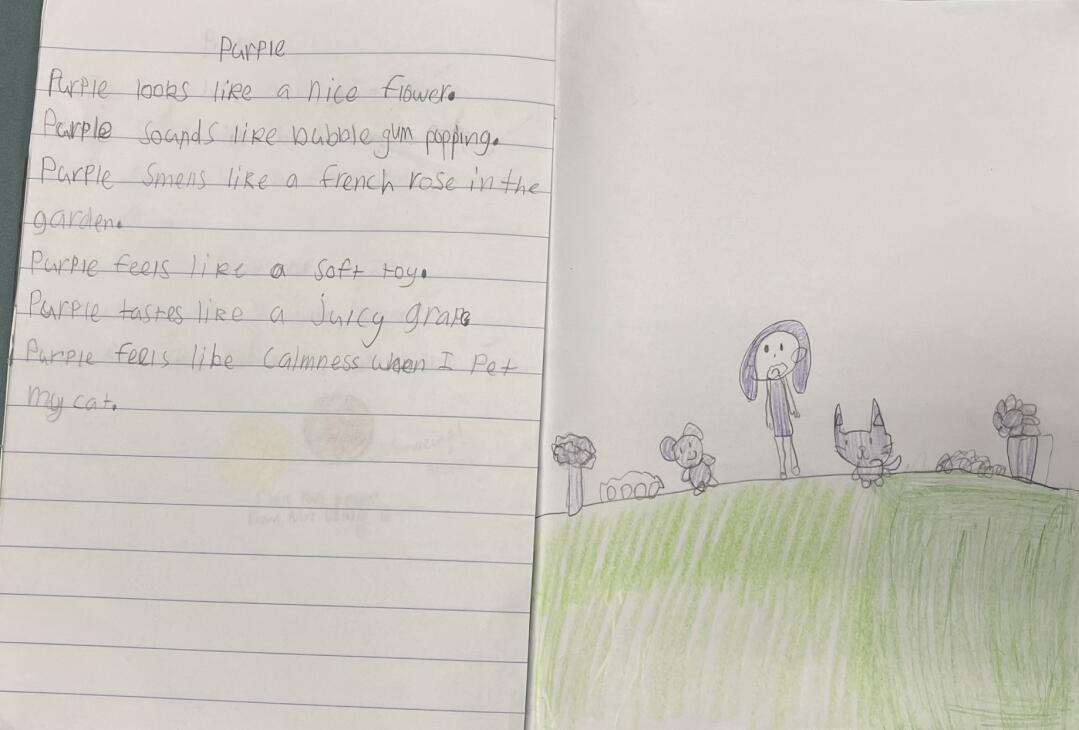 Purple
Purple looks like a nice flower.
Purple sounds like bubble gum popping.
Purple smells like a french rose in the
garden.
Purple feels like a soft toy.
Purple tastes like a juicy grape
Purple feels like calmness when I pet
my cat.